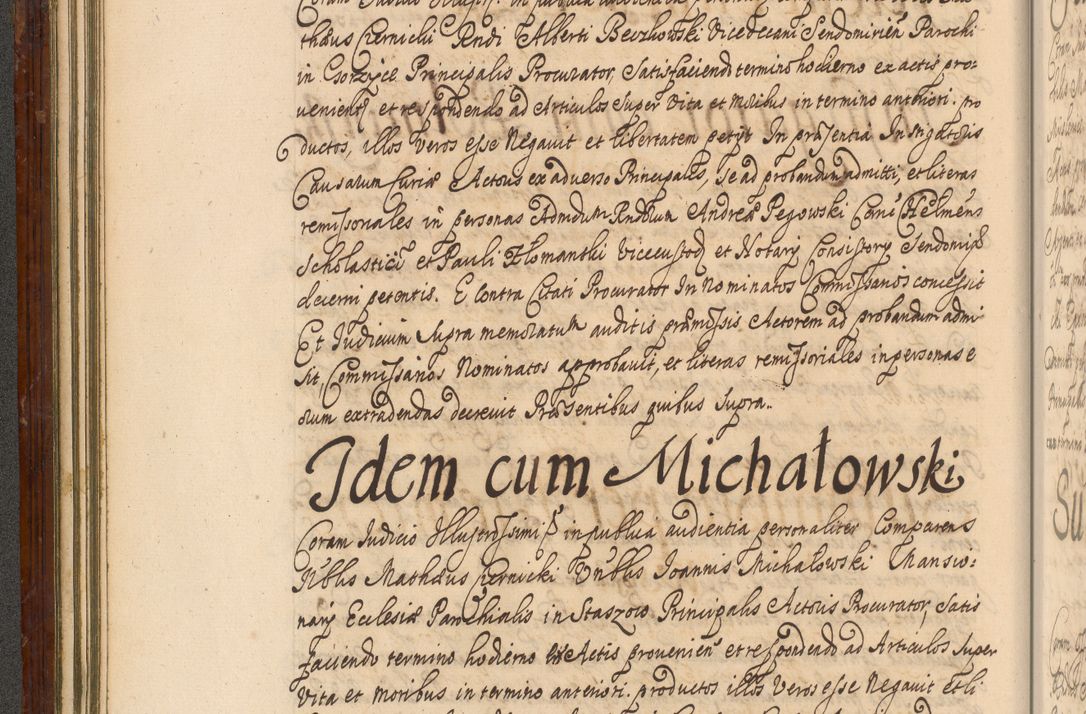 thæus Czernicki Rndi Alberti Beczkowski Vicedecani Sendomirien Parochi
in Gorzyce Principalis Procurator, Satisfaciendo termino hodierno ex actis pro-
venienti et respondendo ad Articulos super vita et moribus in termino anteriori pro
ductos, illos veros esse Negavit et libertatem petyt In præsentia Instigatoris
Causarum Curiæ Actoris ex adverso Principalis, se ad probandum admitti, et literas
remissoriales in personas Admdum Rndorum Andreæ Pegowski Cani Helmens
Scholastici et Pauli Hlomantki Vicecustod et Notary Consistory Sendomir
decerni petentis. E contra Citati Procurator In Nominatos Commissarios concessit
Et Iudicium supra memoratum auditis præmissis Actorem ad probandum admi
sit, Commissarios Nominatos approbavit, et literas remissoriales in personas e
orum extradendas decrevit Præsentibus quibus supra..
Idem cum Michałowski
Coram Iudicio Illustrissimi in publica audientia personaliter Comparens
Nblis Mathæus Czernicki Vnblis Ioannis Michałowski Mansio-
nary Ecclesiæ Parochialis in Staszow Principalis Actoris Procurator, Satis
faciendo termino hodierno ex Actis provenien et respondendo ad Articulos super
vita et moribus in termino anteriori productos illos veros esse Negavit et li